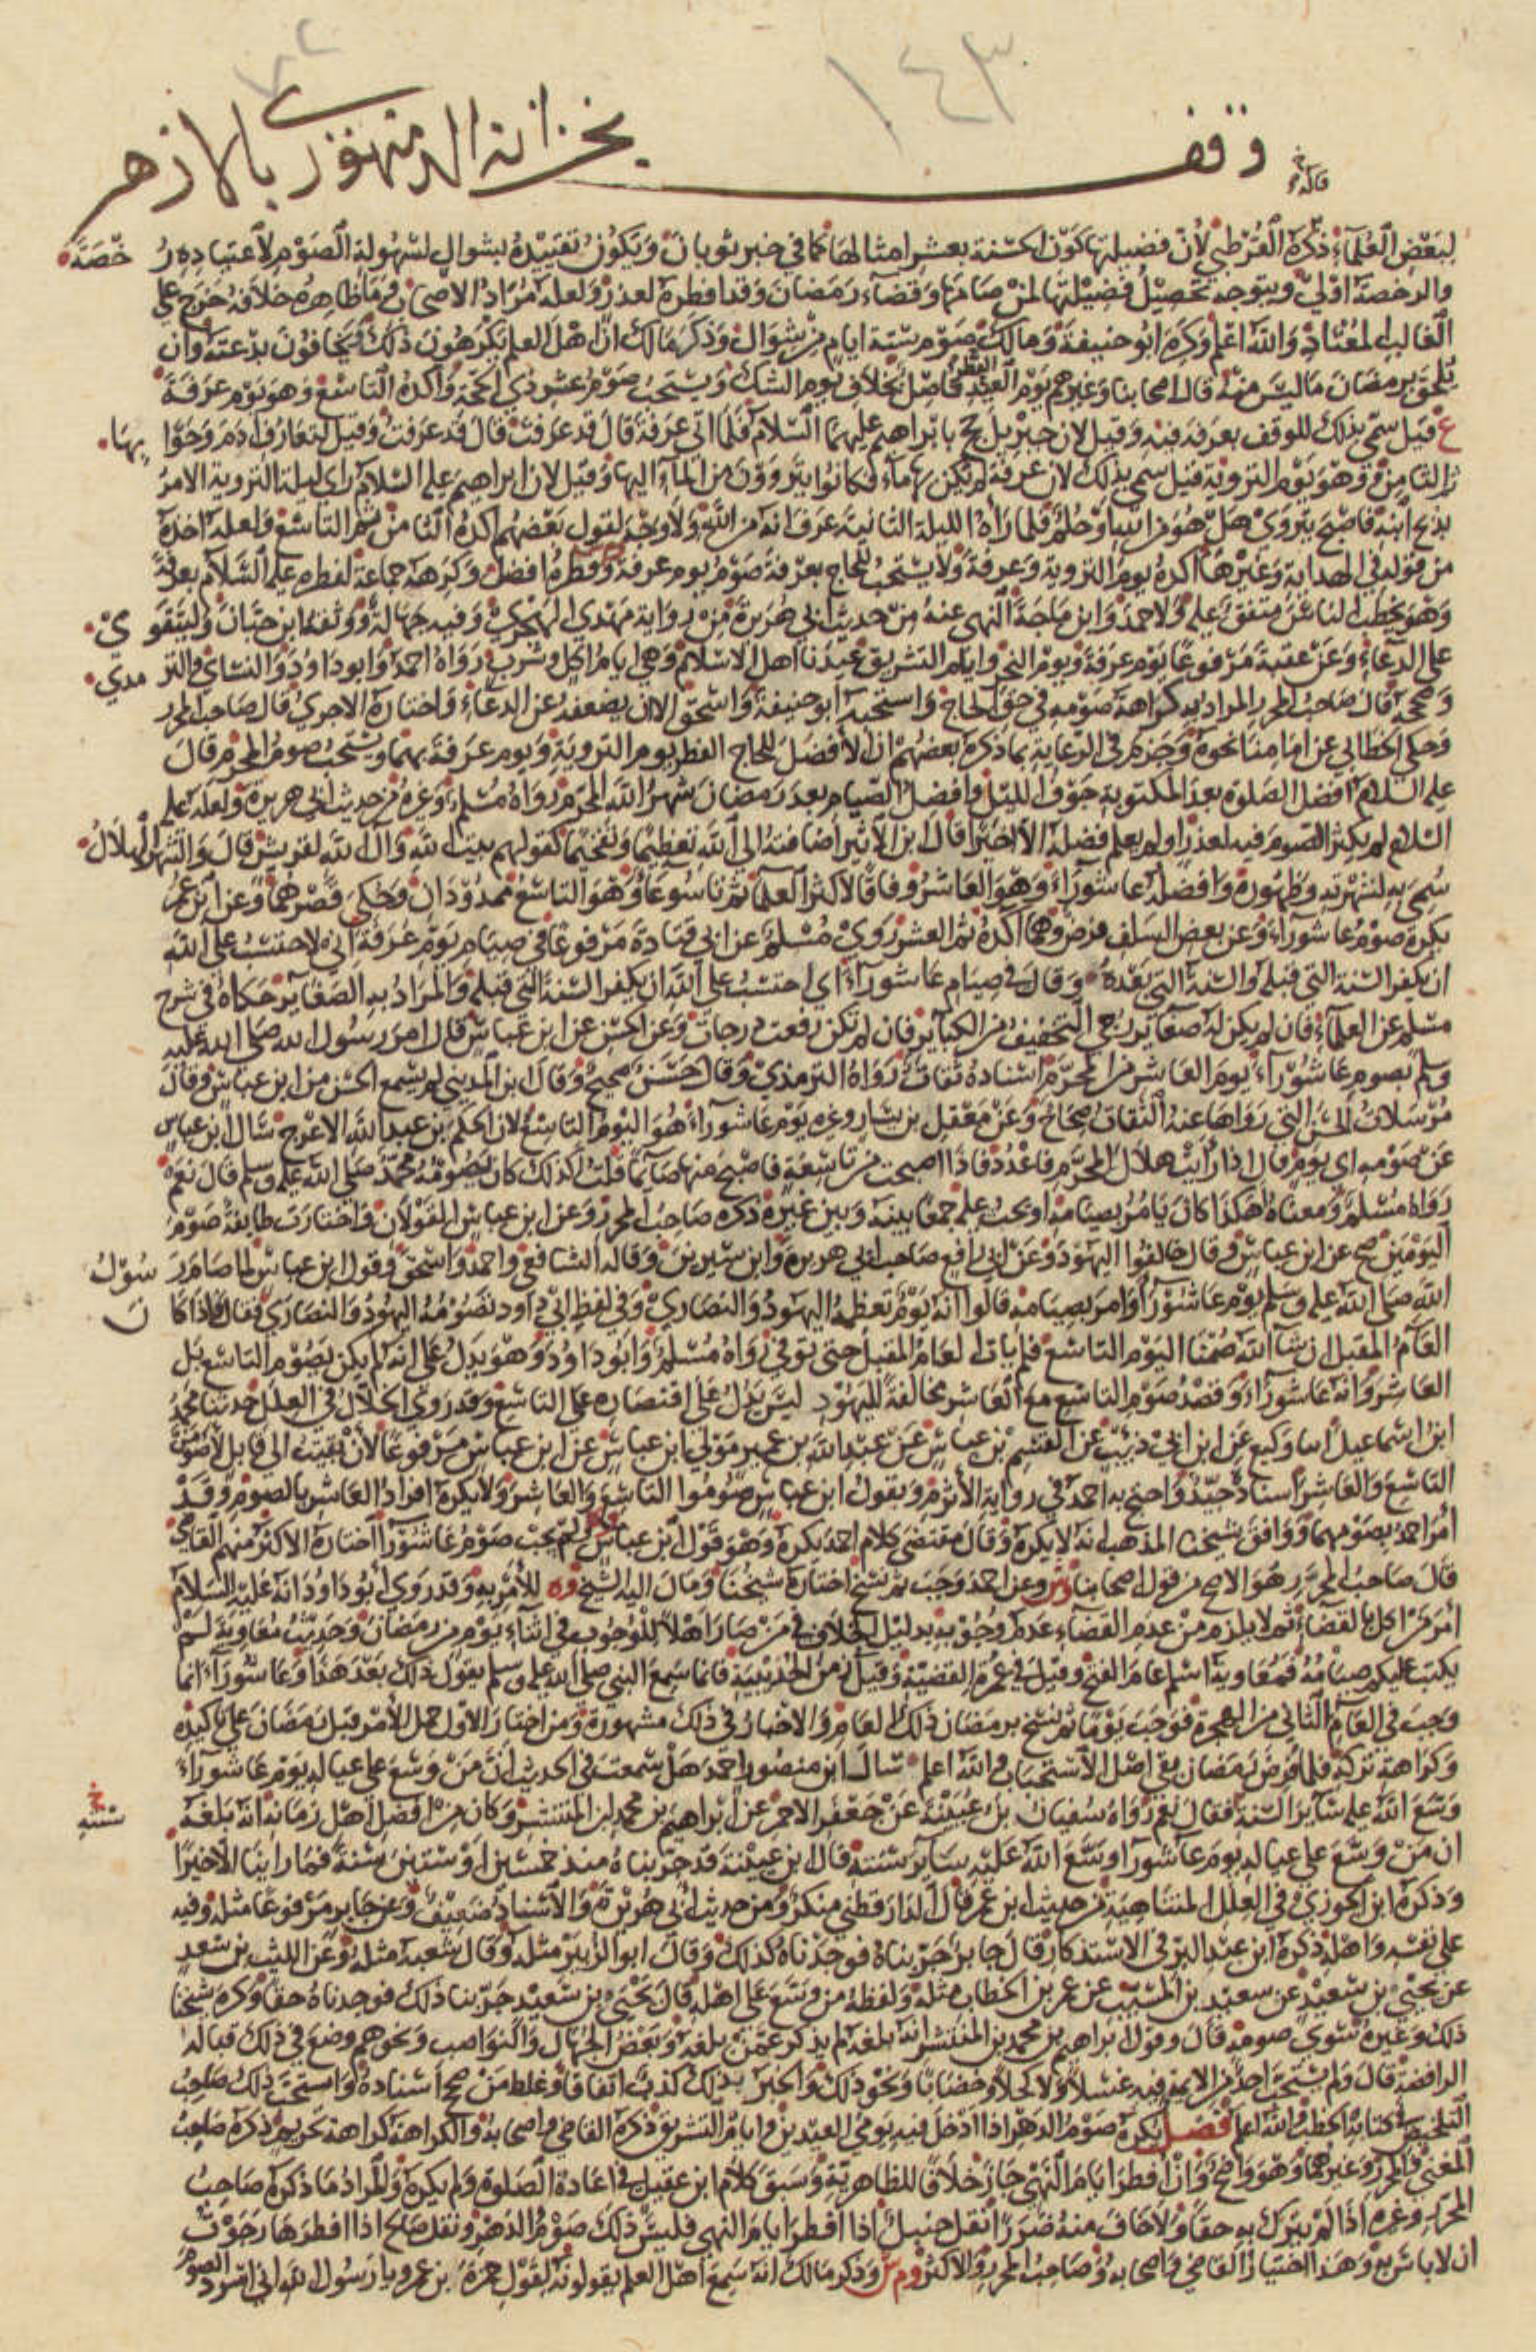 ١٤٣
وقف بخزانة الدمنهوري بالازهر
قاله
لبعض العلماء ذكره القرطبي لان فضيلتها كون الحسنة بعشر امثالها كما في خبر ثوبان ويكون تقييده بشوال لسهولة الصوم لاعتياده رخصة
والرخصة اولى ويتوجه تحصيل فضيلتها لمن صامها وقضاء رمضان وقد افطره لعذر ولعله مراد الاصحاب وما ظاهره خلافه خرج على
الغالب المعتاد والله اعلم وكره ابو حنيفة ومالك صوم ستة ايام من شوال وذكر مالك ان اهل العلم يكرهون ذلك ويخافون بدعته وان
يلحق برمضان ما ليس منه قال اصحابنا وغيرهم يوم العيد الفطر فاصل بخلاف يوم الشك ويستحب صوم عشر ذي الحجة واكده التاسع وهو يوم عرفة
ع قيل سمي بذلك للوقوف بعرفة فيه وقيل لان جبريل حج بابراهيم عليهما السلام فلما اتى عرفة قال قد عرفت قال قد عرفت وقيل لتعارف ادم وحوا بها
ثم الثامن وهو يوم التروية قيل سمي بذلك لان عرفة لم يكن بها ماء فكانوا يتروون من الماء اليها وقيل لان ابراهيم عليه السلام راى ليلة التروية الامر
بذبح ابنه فاصبح يتروى هل هو من الله او حلم فلما راه الليلة الثانية عرف انه من الله ولا وجه لقول بعضهم اكده الثامن ثم التاسع ولعله اخذه
من قوله في الهداية وغيرها اكده يوم التروية وعرفة ولا يستحب للحاج بعرفة صوم يوم عرفة وفطره افضل وكرهه جماعة لفطره عليه السلام بعرفة
وهو يخطب الناس متفق عليه ولاحمد وابن ماجة النهي عنه من حديث ابي هريرة من رواية مهدي الهجري وفيه جهالة ووثقه ابن حبان وليتقوى
على الدعاء وعن عقبة مرفوعا يوم عرفة ويوم النحر وايام التشريق عيدنا اهل الاسلام وهي ايام اكل وشرب رواه احمد وابو داود والنساي والترمدي
وصححه قال صاحب المحرر المراد به كراهة صومه في حق الحاج واستحبه ابو حنيفة واسحق الا ان يضعفه عن الدعاء واختاره الاجري قال صاحب المحرر
وحكى الخطابي عن امامنا نحوه وجزم في الرعاية بما ذكره بعضهم ان الافضل للحاج الفطر يوم التروية ويوم عرفة بهما ويستحب صوم المحرم قال
عليه السلام افضل الصلوة بعد المكتوبة جوف الليل وافضل الصيام بعد رمضان شهر الله المحرم رواه مسلم وغيره من حديث ابي هريرة ولعله عليه
السلام لم يكثر الصوم فيه لعذر او لم يعلم فضله الا اخيرا قال ابن الاثير اضافته الى الله تعظيما وتفخيما كقولهم بيت الله وال الله لقريش قال والشهر الهلال
سمي به لشهرته وظهوره وافضله عاشوراء وهو العاشر وفاقا لاكثر العلماء ثم تاسوعا وهو التاسع ممدودان وحكي قصرهما وعن ابن عمر
يكره صوم عاشوراء وعن بعض السلف فرض وهما اكده ثم العشر روى مسلم عن ابي قتادة مرفوعا في صيام يوم عرفة اني لاحتسب على الله
ان يكفر السنة التي قبله والسنة التي بعده وقال في صيام عاشوراء اي احتسب على الله ان يكفر السنة التي قبله والمراد به الصغاير حكاه في شرح
مسلم عن العلماء فان لم يكن له صغاير رجي التخفيف من الكباير فان لم تكن رفعت درجات وعن الحسن عن ابن عباس قال امر رسول الله صلى الله عليه
وسلم بصوم عاشوراء يوم العاشر من المحرم اسناده ثقات رواه الترمذي وقال حسن صحيح وقال ابن المديني لم يسمع الحسن من ابن عباس وقال
مرسلات الحسن التي رواها عنه الثقات صحاح وعن معقل بن يسار وغيره يوم عاشوراء هو اليوم التاسع لان الحكم بن عبد الله الاعرج سال ابن عباس
عن صومه اي يوم قال اذا رايت هلال المحرم فاعدد فاذا اصبحت من تاسعة فاصبح منها صايما قلت اكذلك كان يصومه محمد صلى الله عليه وسلم قال نعم
رواه مسلم ومعناه اهكذا كان يامر بصيامه او يحب عليه جمعا بينه وبين غيره ذكره صاحب المحرر وعن ابن عباس القولان واختارت طايفة صوم
اليومين صح عن ابن عباس وقال خالفوا اليهود وعن ابي رافع صاحب ابي هريرة وابن سيرين وقاله الشافعي واحمد واسحق وقول ابن عباس لما صام رسول
الله صلى الله عليه وسلم يوم عاشورا وامر بصيامه قالوا انه يوم تعظمه اليهود والنصارى وفي لفظ ابي داود تصومه اليهود والنصارى فقال فاذا كان
العام المقبل ان شا الله صمنا اليوم التاسع فلم يات العام المقبل حتى توفي رواه مسلم وابو داود وهو يدل على انه لم يكن يصوم التاسع بل
العاشر وانه عاشورا وقصد صوم التاسع مع العاشر مخالفة لليهود ليس يدل على اقتصاره على التاسع وقد روى الخلال في العلل حدثنا محمد
ابن اسماعيل انبا وكيع عن ابن ابي ذئب عن القسم بن عباس عن عبد الله بن عمير مولى ابن عباس عن ابن عباس مرفوعا لان بقيت الى قابل لاصومن
التاسع والعاشر اسناد جيد واحتج به احمد في رواية الاثرم ويقول ابن عباس صوموا التاسع والعاشر ولا يكره افراد العاشر بالصوم وقد
امر احمد بصومهما ووافق شيخنا المذهب انه لا يكره وقال مقتضى كلام احمد يكره وهو قول ابن عباس ولم يجب صوم عاشورا اختاره الاكثر منهم القاضي
قال صاحب المحرر هو الاصح من قول اصحابنا وش وعن احمد وجب ثم نسخ اختاره شيخنا ومال اليه الشيخ وه للامر به وقد روى ابو داود انه عليه السلام
امر من اكل بالقضاء ثم لا يلزم من عدم القضاء عدم وجوبه بدليل الخلاف في من صار اهلا للوجوب في اثناء يوم من رمضان وحديث معاوية لم
يكتب عليكم صيامه فمعاوية اسلم عام الفتح وقيل في عمرة القضية وقيل زمن الحديبية فانما سمع النبي صلى الله عليه وسلم يقول ذلك بعد هذا وعاشوراء انما
وجب في العام الثاني من الهجرة فوجب يوما ثم نسخ برمضان ذلك العام والاخبار في ذلك مشهورة ومن اختار الاول حمل الامر قبل رمضان على تاكيده
وكراهة تركه فلما فرض رمضان بقي اصل الاستحباب والله اعلم سال ابن منصور احمد هل سمعت في الحديث ان من وسع على عياله يوم عاشوراء
وسع الله عليه ساير السنة فقال نعم رواه سفيان بن عيينة عن جعفر الاحمر عن ابراهيم بن محمد بن المنتشر وكان من افضل اهل زمانه انه بلغه
ان من وسع على عياله يوم عاشورا اوسع الله عليه ساير سنته قال ابن عيينة قد جربناه منذ خمسين او ستين سنة فما راينا الا خيرا
وذكره ابن الجوزي في العلل المتناهية من حديث ابن عمر قال الدارقطني منكر ومن حديث ابي هريرة والاسناد ضعيف وعن جابر مرفوعا مثله وفيه
على نفسه واهله ذكره ابن عبد البر في الاستذكار قال جابر جربناه فوجدناه كذلك وقال ابو الزبير مثله وقال شعبة مثله وعن الليث بن سعد
عن يحيى بن سعيد عن سعيد بن المسيب عن عمر بن الخطاب مثله ولفظه من وسع على اهله قال يحيى بن سعيد جربنا ذلك فوجدناه حقا وكره شيخنا
ذلك وغيره سوى صومه قال وقول ابراهيم بن محمد بن المنتشر انه بلغه لم يذكر عمن بلغه وبعض الجهال والنواصب ونحوهم وضع في ذلك قبالة
الرافضة قال ولم يستحب احد من الايمة فيه غسلا ولا كحلا وخضابا ونحو ذلك والخبر بذلك كذب اتفاقا وغلط من صحح اسناده واستحب ذلك صاحب
التلخيص في كتابه الخطب والله اعلم فصل يكره صوم الدهر اذا ادخل فيه يومي العيدين وايام التشريق ذكره القاضي واصحابه والكراهة كراهة تحريم ذكره صاحب
المغني والمحرر وغيرهما وهو واضح وان افطر ايام النهي جاز خلافا للظاهرية وسبق كلام ابن عقيل في اعادة الصلوة ولم يكره والمراد ما ذكره صاحب
المحرر وغيره اذا لم يترك به حقا ولا خاف منه ضررا نقل حنبل اذا افطر ايام النهي فليس ذلك صوم الدهر ونقل صالح اذا افطرها رجوت
ان لا باس به وهذا اختيار القاضي واصحابه وصاحب المحرر والاكثر وم ش وذكر مالك انه سمع اهل العلم يقولونه لقول حمزة بن عمرو يا رسول الله اني اسرد الصوم
سنته